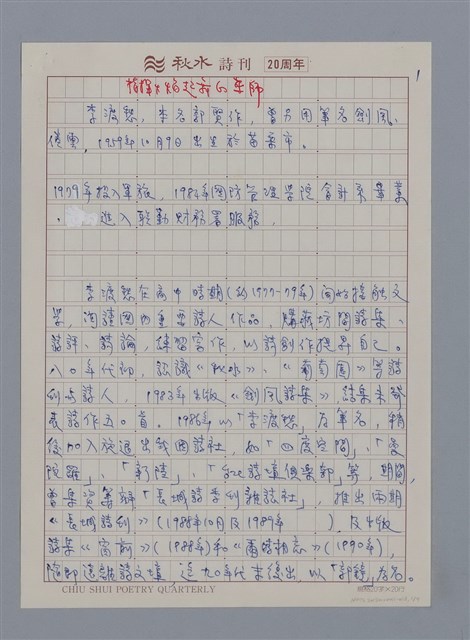 秋水 詩刊 20周年
1
李渡愁,本名郭賢作,曾另用筆名劍風、
倦雲,1959年10月9日出生於苗栗市。
1979年投入軍旅,1984年國防管理學院會計系畢業
。進入聯勤財務署服務。
李渡愁在高中時期(約1977-79年)間始接觸文
學,閱讀國內重要詩人作品,購藏坊間詩集、
詩評、詩論,練習寫作,以詩創作提昇自己。
八〇年代初,認識《秋水》、《葡萄園》等詩
刊與詩人,1983年出版《劍風詩集》,詩集未發
表詩作五〇首。1985年以「李渡愁」為筆名,稍
後加入旋退出我國詩社,如「四度空間」、「曼
陀羅」、「新陸」、「詩壇俱樂部」等,期間
曾集資籌辦「長城詩季刊雜誌社」,推出兩期
《長城詩刊》(1988年10月及1989年 ),及出版
詩集《雷前》(1988年)和《兩岸相忘》(1990年),
隨即遠離詩文壇,迄九〇年代末復出,以「郭靜」為名。
CHIU SHUI POETRY QUARTERLY